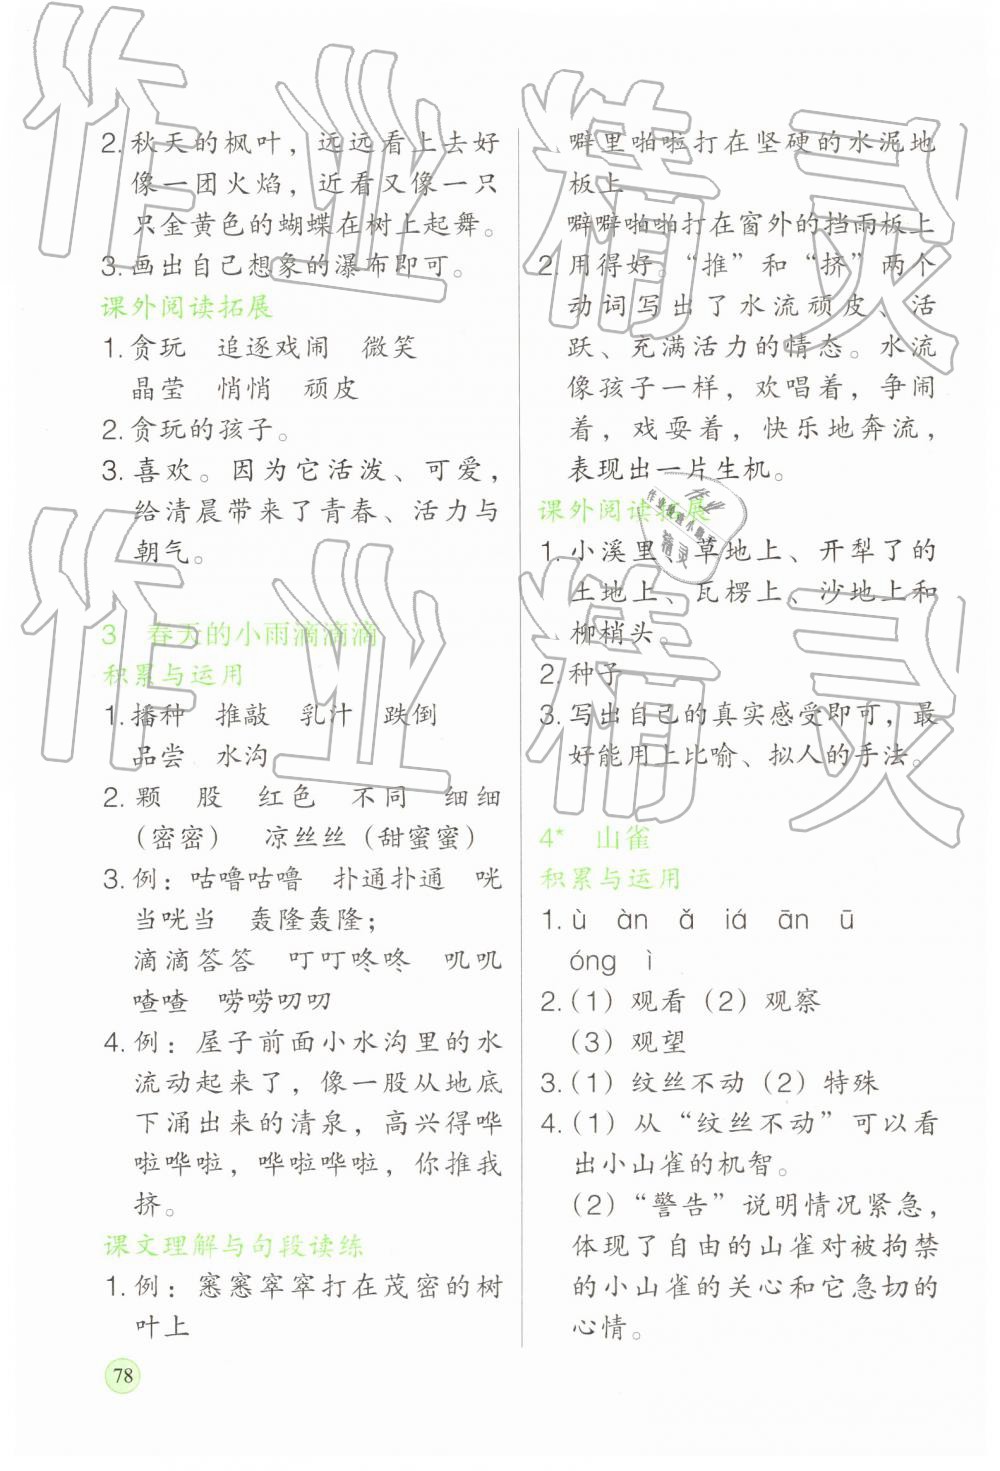 2. 秋天的枫叶，远远看上去好
像一团火焰，近看又像一只
只金黄色的蝴蝶在树上起舞。
3. 画出自己想象的瀑布即可。
课外阅读拓展
1. 贪玩 追逐戏闹 微笑
晶莹 悄悄 顽皮
2. 贪玩的孩子。
3. 喜欢。因为它活泼、可爱，
给清晨带来了青春、活力与
朝气。
3 春天的小雨滴滴滴
积累与运用
1. 播种 推敲 乳汁 跌倒
品尝 水沟
2. 颗 股 红色 不同 细细
（密密） 凉丝丝（甜蜜蜜）
3. 例：咕噜咕噜 扑通扑通 咣
当咣当 轰隆轰隆；
滴滴答答 叮叮咚咚 叽叽
喳喳 唠唠叨叨
4. 例：屋子前面小水沟里的水
流动起来了，像一股从地底
下涌出来的清泉，高兴得哗
啦哗啦，哗啦哗啦，你推我
挤。
课文理解与句段读练
1. 例：窸窸窣窣打在茂密的树
叶上
噼里啪啦打在坚硬的水泥地
板上
噼噼啪啪打在窗外的挡雨板上
2. 用得好。“推”和“挤”两个
动词写出了水流顽皮、活
跃、充满活力的情态。水流
像孩子一样，欢唱着，争闹
着，戏耍着，快乐地奔流，
表现出一片生机。
课外阅读拓展
1. 小溪里、草地上、开犁了的
土地上、瓦楞上、沙地上和
柳梢头。
2. 种子
3. 写出自己的真实感受即可，最
好能用上比喻、拟人的手法。
4* 山雀
积累与运用
1. ù àn ǎ iá ān ū
óng ì
2.（1）观看（2）观察
（3）观望
3.（1）纹丝不动（2）特殊
4.（1）从“纹丝不动”可以看
出小山雀的机智。
（2）“警告”说明情况紧急，
体现了自由的山雀对被拘禁
的小山雀的关心和它急切的
心情。
78
作业精灵
作业精灵